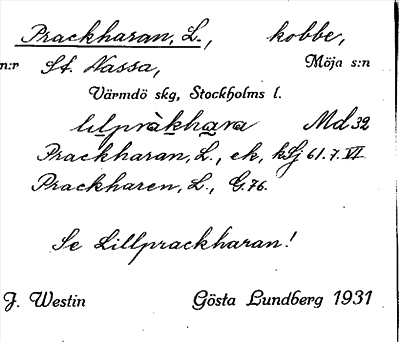 Prackharan, L., kobbe,
n:r St. Nassa, Möja s:n
Värmdö skg, Stockholms l.
lilpràkhara Md 32
Prackharan, L., ek, kSj 61.7.VI
Prackharen, L., G.76.
Se Lillprackharan!
J. Westin Gösta Lundberg 1931